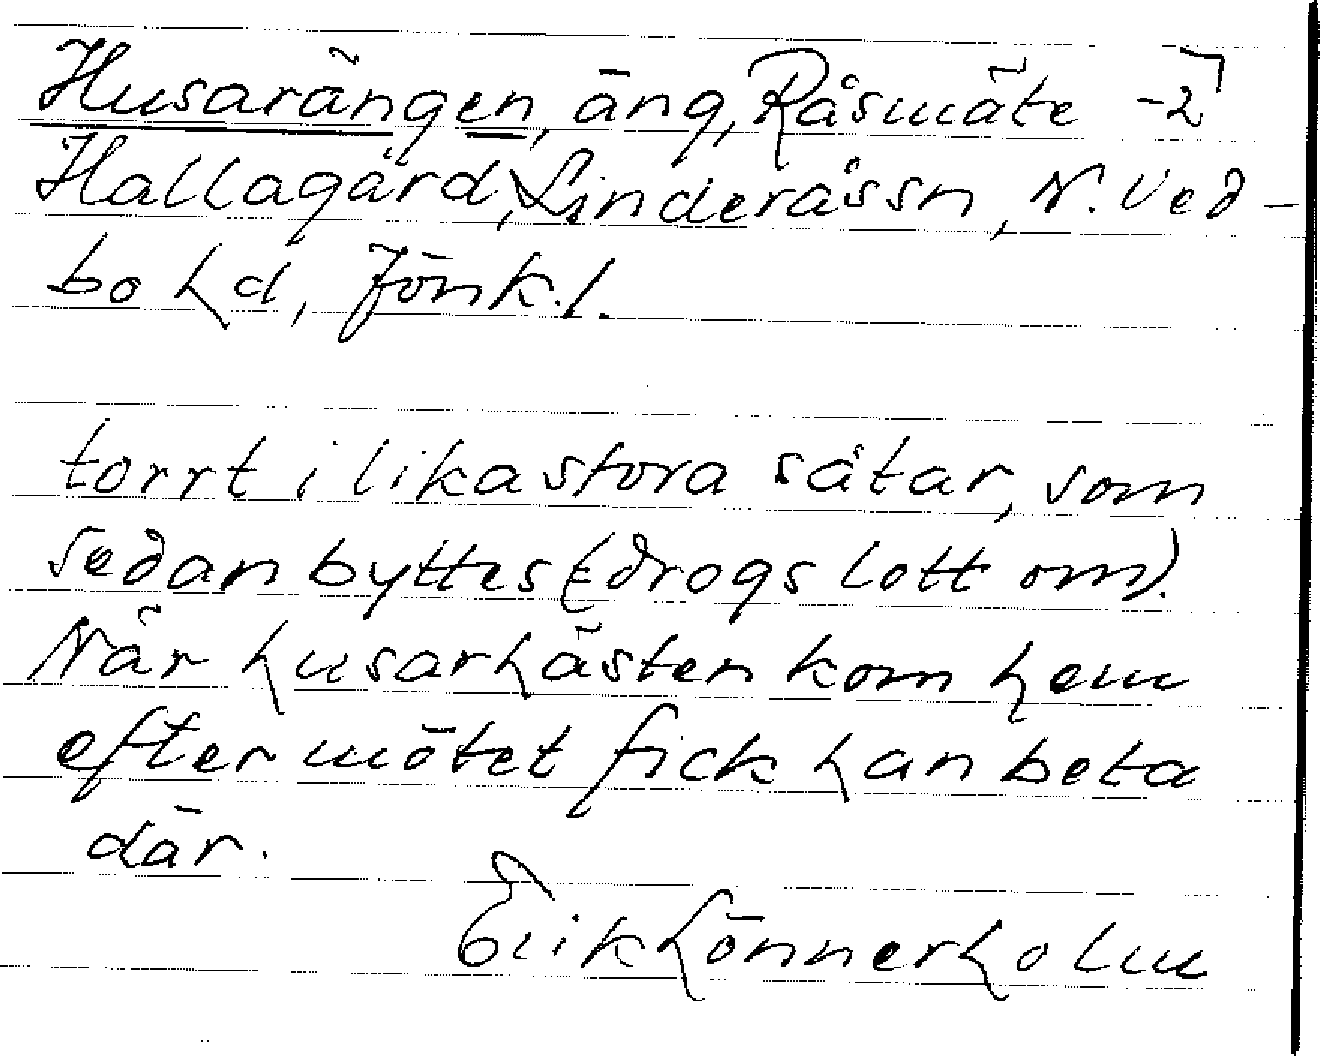 Husarängen, äng, Råsmäte -2
Hallagård, Linderåssn, N. Ved-
bo hd, Jönk. l.
torrt i lika stora såtar, som
sedan byttes (drogs lott om).
När husarhästen kom hem
efter mötet fick han beta
där.
Erik Lönnerholm